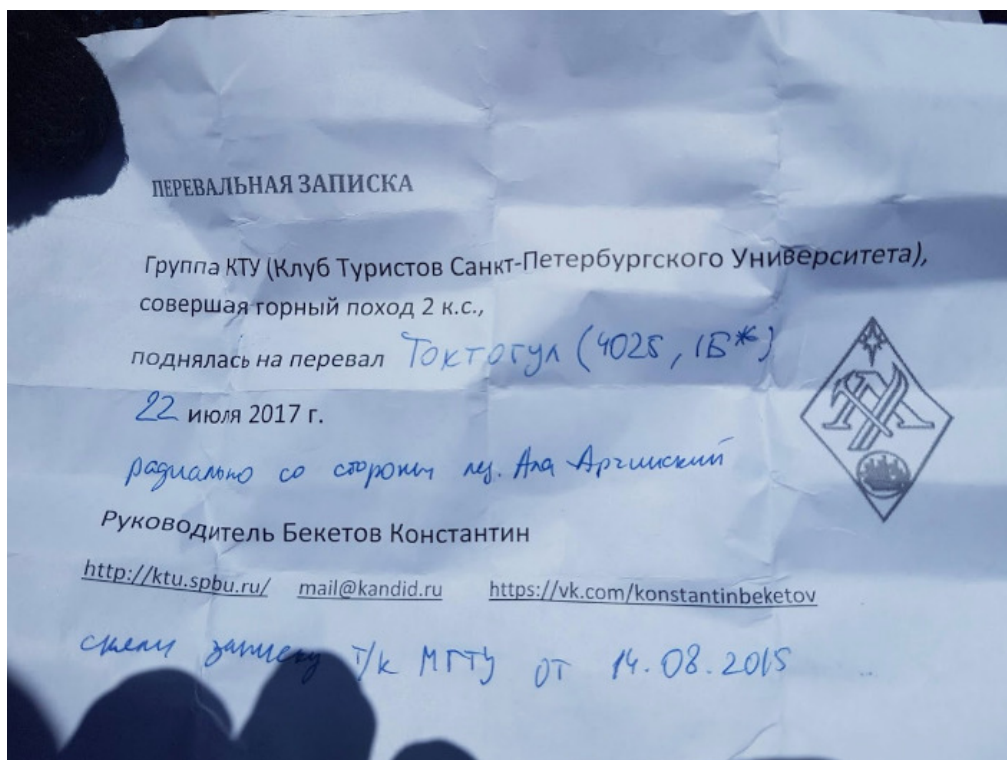 ПЕРЕВАЛЬНАЯ ЗАПИСКА
Группа КТУ (Клуб Туристов Санкт-Петербургского Университета),
совершая горный поход 2 к.с.,
поднялась на перевал Токтогул (4025, 1Б*)
22 июля 2017 г.
радиально со стороны лед. Ала Арчинский
Руководитель Бекетов Константин
http://ktu.spbu.ru/ mail@kandid.ru https://vk.com/konstantinbeketov
сняли записку т/к МГТУ от 14.08.2015